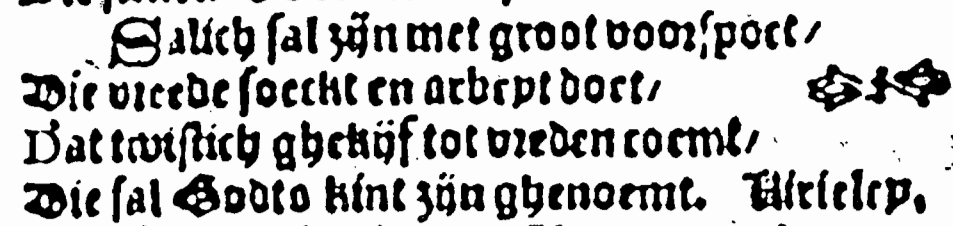 Salich sal zijn met groot voorspoet/
Die vreede soeckt en arbeyt doet/
Dat twistich ghekijf tot vreden coemt/
Die sal Godts kint zijn ghenoemt.